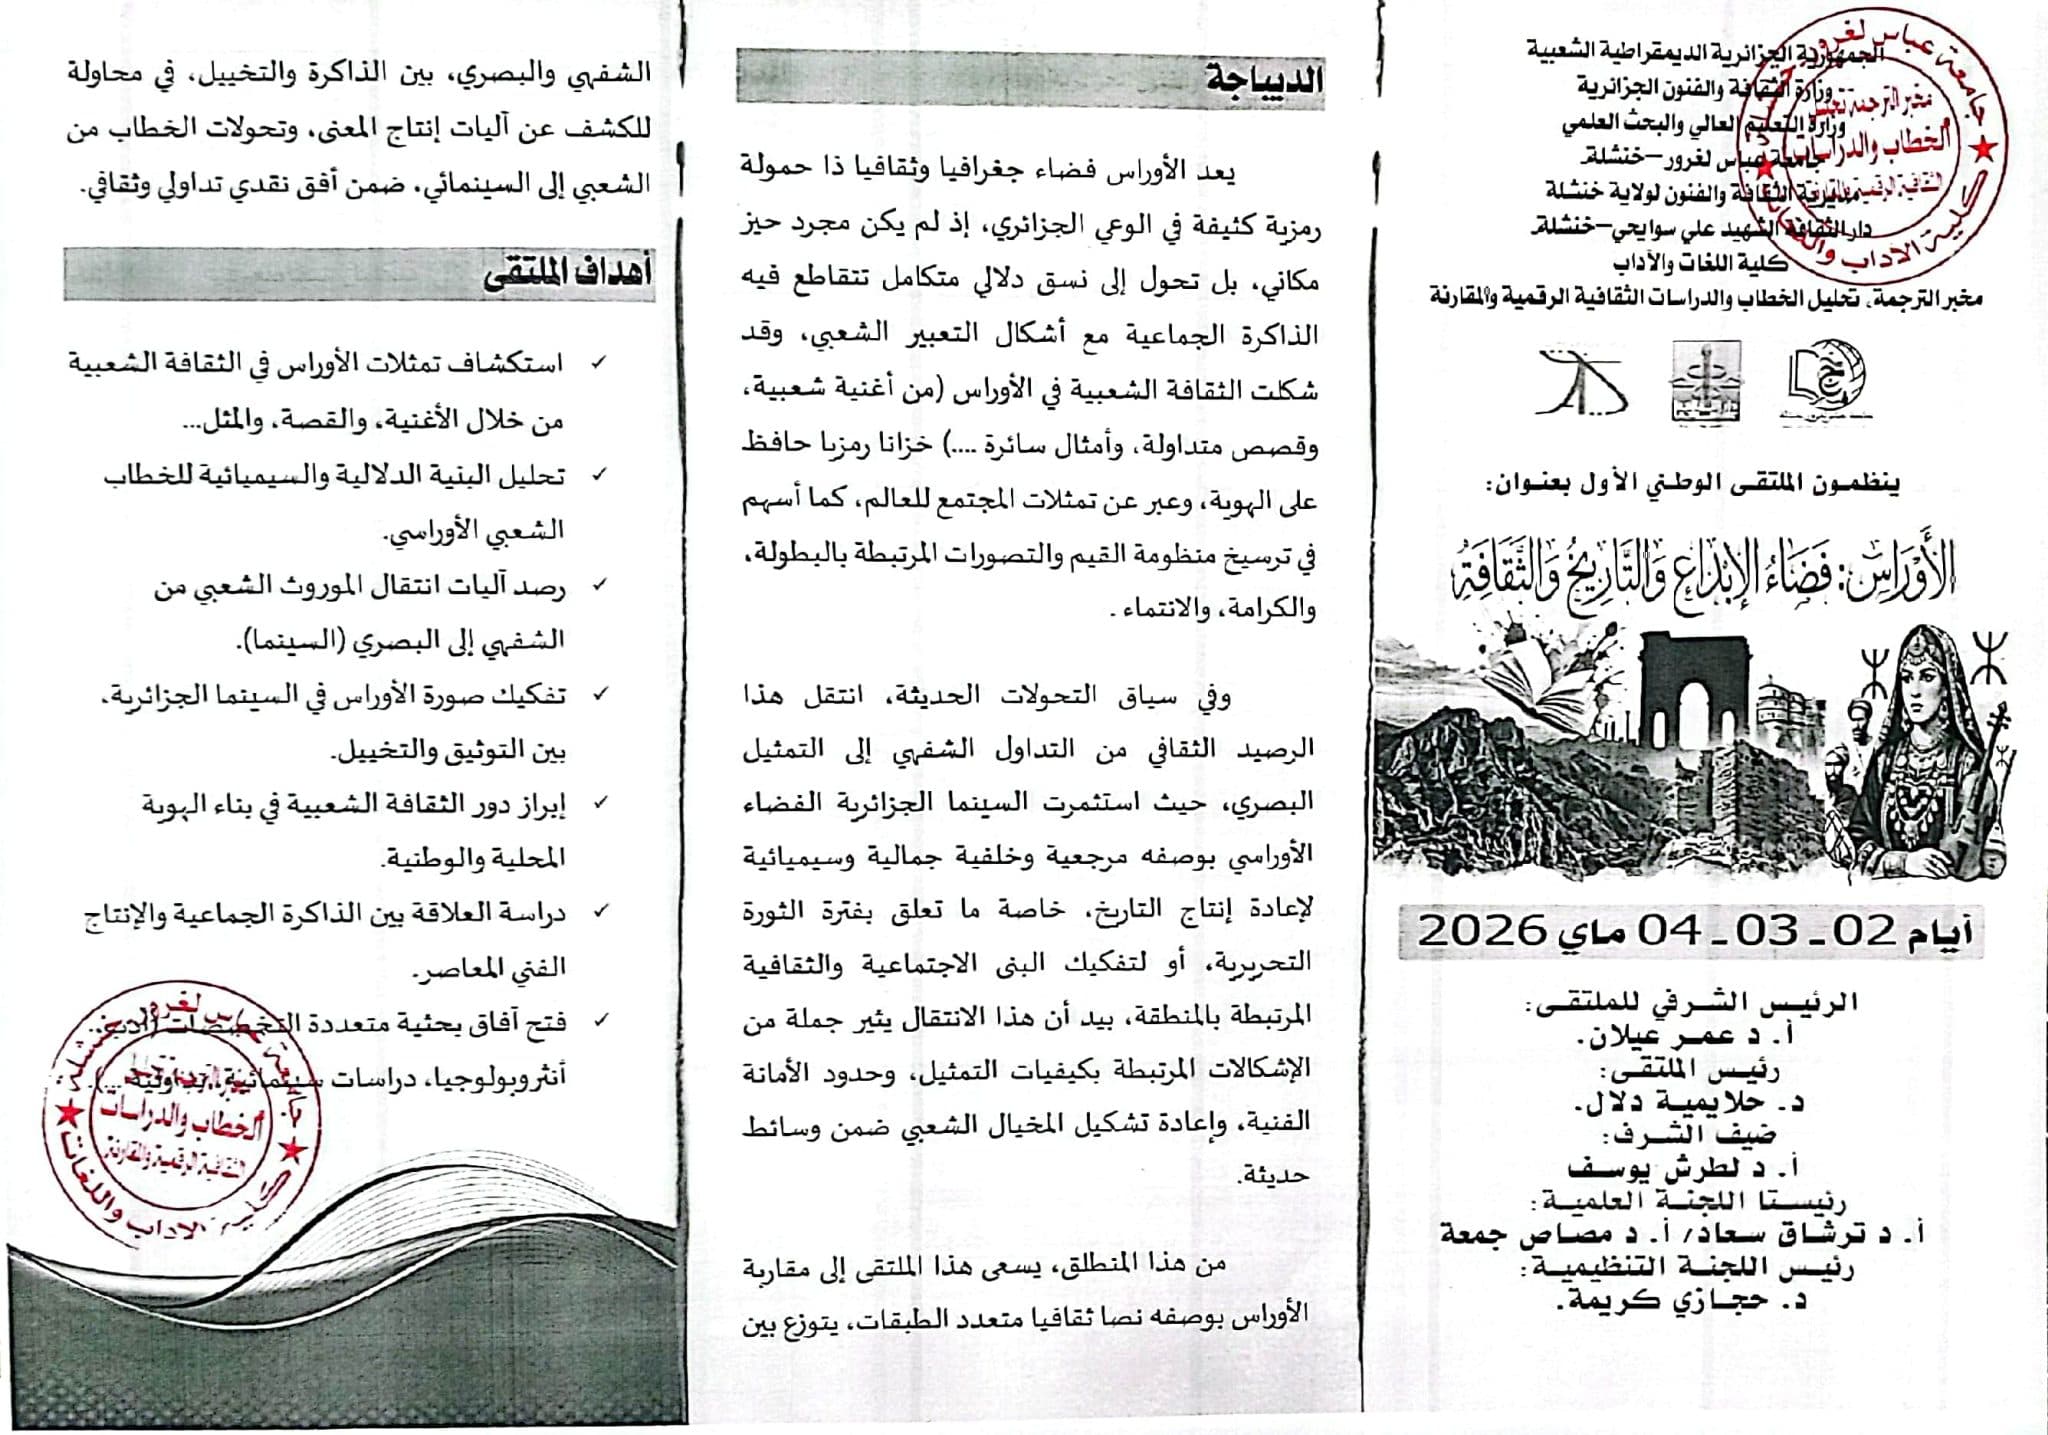 الجمهورية الجزائرية الديمقراطية الشعبية
وزارة الثقافة والفنون الجزائرية
وزارة التعليم العالي والبحث العلمي
جامعة عباس لغرور-خنشلة
مديرية الثقافة والفنون لولاية خنشلة
دار الثقافة الشهيد علي سوايحي-خنشلة
كلية اللغات والآداب
مخبر الترجمة، تحليل الخطاب والدراسات الثقافية الرقمية والمقارنة
ينظمون الملتقى الوطني الأول بعنوان:
الأَوْرَاسُ: فَضَاءُ الإِبْدَاعِ وَالتَّارِيخِ وَالثَّقَافَةِ
أيام 02 - 03 - 04 ماي 2026
الرئيس الشرفي للملتقى:
أ. د عمر عيلان.
رئيس الملتقى:
د. حلايمية دلال.
ضيف الشرف:
أ. د لطرش يوسف
رئيستا اللجنة العلمية:
أ. د ترشاق سعاد/ أ. د مصاص جمعة
رئيس اللجنة التنظيمية:
د. حجازي كريمة.
جامعة عباس لغرور خنشلة
الخطاب والدراسات
كلية الآداب واللغات
الديباجة
يعد الأوراس فضاء جغرافيا وثقافيا ذا حمولة
رمزية كثيفة في الوعي الجزائري، إذ لم يكن مجرد حيز
مكاني، بل تحول إلى نسق دلالي متكامل تتقاطع فيه
الذاكرة الجماعية مع أشكال التعبير الشعبي، وقد
شكلت الثقافة الشعبية في الأوراس (من أغنية شعبية،
وقصص متداولة، وأمثال سائرة ....) خزانا رمزيا حافظ
على الهوية، وعبر عن تمثلات المجتمع للعالم، كما أسهم
في ترسيخ منظومة القيم والتصورات المرتبطة بالبطولة،
والكرامة، والانتماء .
وفي سياق التحولات الحديثة، انتقل هذا
الرصيد الثقافي من التداول الشفهي إلى التمثيل
البصري، حيث استثمرت السينما الجزائرية الفضاء
الأوراسي بوصفه مرجعية وخلفية جمالية وسيميائية
لإعادة إنتاج التاريخ، خاصة ما تعلق بفترة الثورة
التحريرية، أو لتفكيك البنى الاجتماعية والثقافية
المرتبطة بالمنطقة، بيد أن هذا الانتقال يثير جملة من
الإشكالات المرتبطة بكيفيات التمثيل، وحدود الأمانة
الفنية، وإعادة تشكيل المخيال الشعبي ضمن وسائط
حديثة.
من هذا المنطلق، يسعى هذا الملتقى إلى مقاربة
الأوراس بوصفه نصا ثقافيا متعدد الطبقات، يتوزع بين
الشفهي والبصري، بين الذاكرة والتخييل، في محاولة
للكشف عن آليات إنتاج المعنى، وتحولات الخطاب من
الشعبي إلى السينمائي، ضمن أفق نقدي تداولي وثقافي.
أهداف الملتقى
✓ استكشاف تمثلات الأوراس في الثقافة الشعبية
من خلال الأغنية، والقصة، والمثل...
✓ تحليل البنية الدلالية والسيميائية للخطاب
الشعبي الأوراسي.
✓ رصد آليات انتقال الموروث الشعبي من
الشفهي إلى البصري (السينما).
✓ تفكيك صورة الأوراس في السينما الجزائرية،
بين التوثيق والتخييل.
✓ إبراز دور الثقافة الشعبية في بناء الهوية
المحلية والوطنية.
✓ دراسة العلاقة بين الذاكرة الجماعية والإنتاج
الفني المعاصر.
✓ فتح آفاق بحثية متعددة التخصصات (أدب،
أنثروبولوجيا، دراسات سينمائية، تداولية ...).
جامعة عباس لغرور خنشلة
الخطاب والدراسات
الثقافية الرقمية والمقارنة
كلية الآداب واللغات